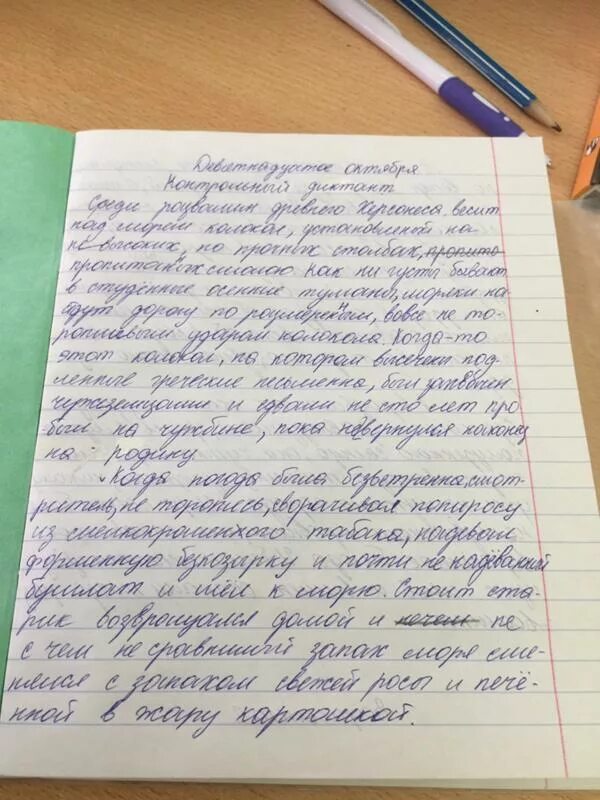 Деветнадцатое октября
Контрольный диктант
Среди розвалин древнего Херсонеса весит
над морем колокол, установленый на
не высоких, но прочных столбах, пропито
пропитаных смолою. Как ни густы бывают
в студённые осенние туманы, моряки на-
йдут дорогу по розмеренным, вовсе не то-
ропливым ударам колокола. Когда-то
этот колокол, на котором высечены под-
ленные греческие письменна, был захвачен
чужеземцами и едвали не сто лет про-
был на чужбине, пока не вернулся наконец
на родину
Когда погода была безветренна, смот-
ритель, не торопясь, сворачивал попиросу
из мелкокрошенного табака, надевал
форменную безкозырку и почти не надёванный
бушлат и шёл к морю. Стоит ста-
рик возвращался домой и нечем не
с чем не сравнимый запах моря сме-
нялся с запахом свежей росы и печё-
нной в жару картошкой.